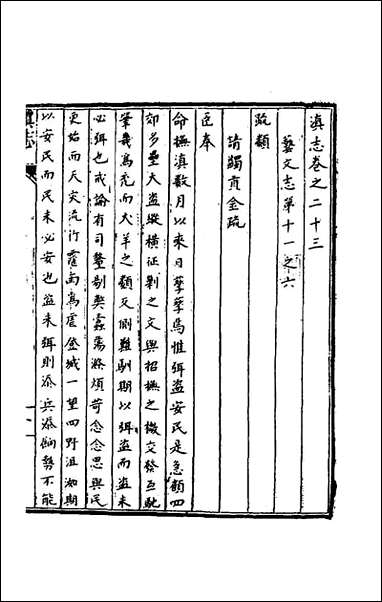 滇志卷之二十三
藝文志第十一之六
疏類
請蠲貢金疏
臣奉
命撫滇數月以來日孳孳焉惟弭盜安民是急顧四
郊多壘大盜縱橫征剿之文與招撫之檄交發互馳
筆幾為禿而犬羊之類反側難馴期以弭盜而盜未
必弭也戒諭有司釐剔弊蠹蕩滌煩苛念念思與民
更始而天災流行霪雨為虐金城一望四野沮洳期
以安民而民未必安也盜未弭則添兵添餉勢不能
滇志